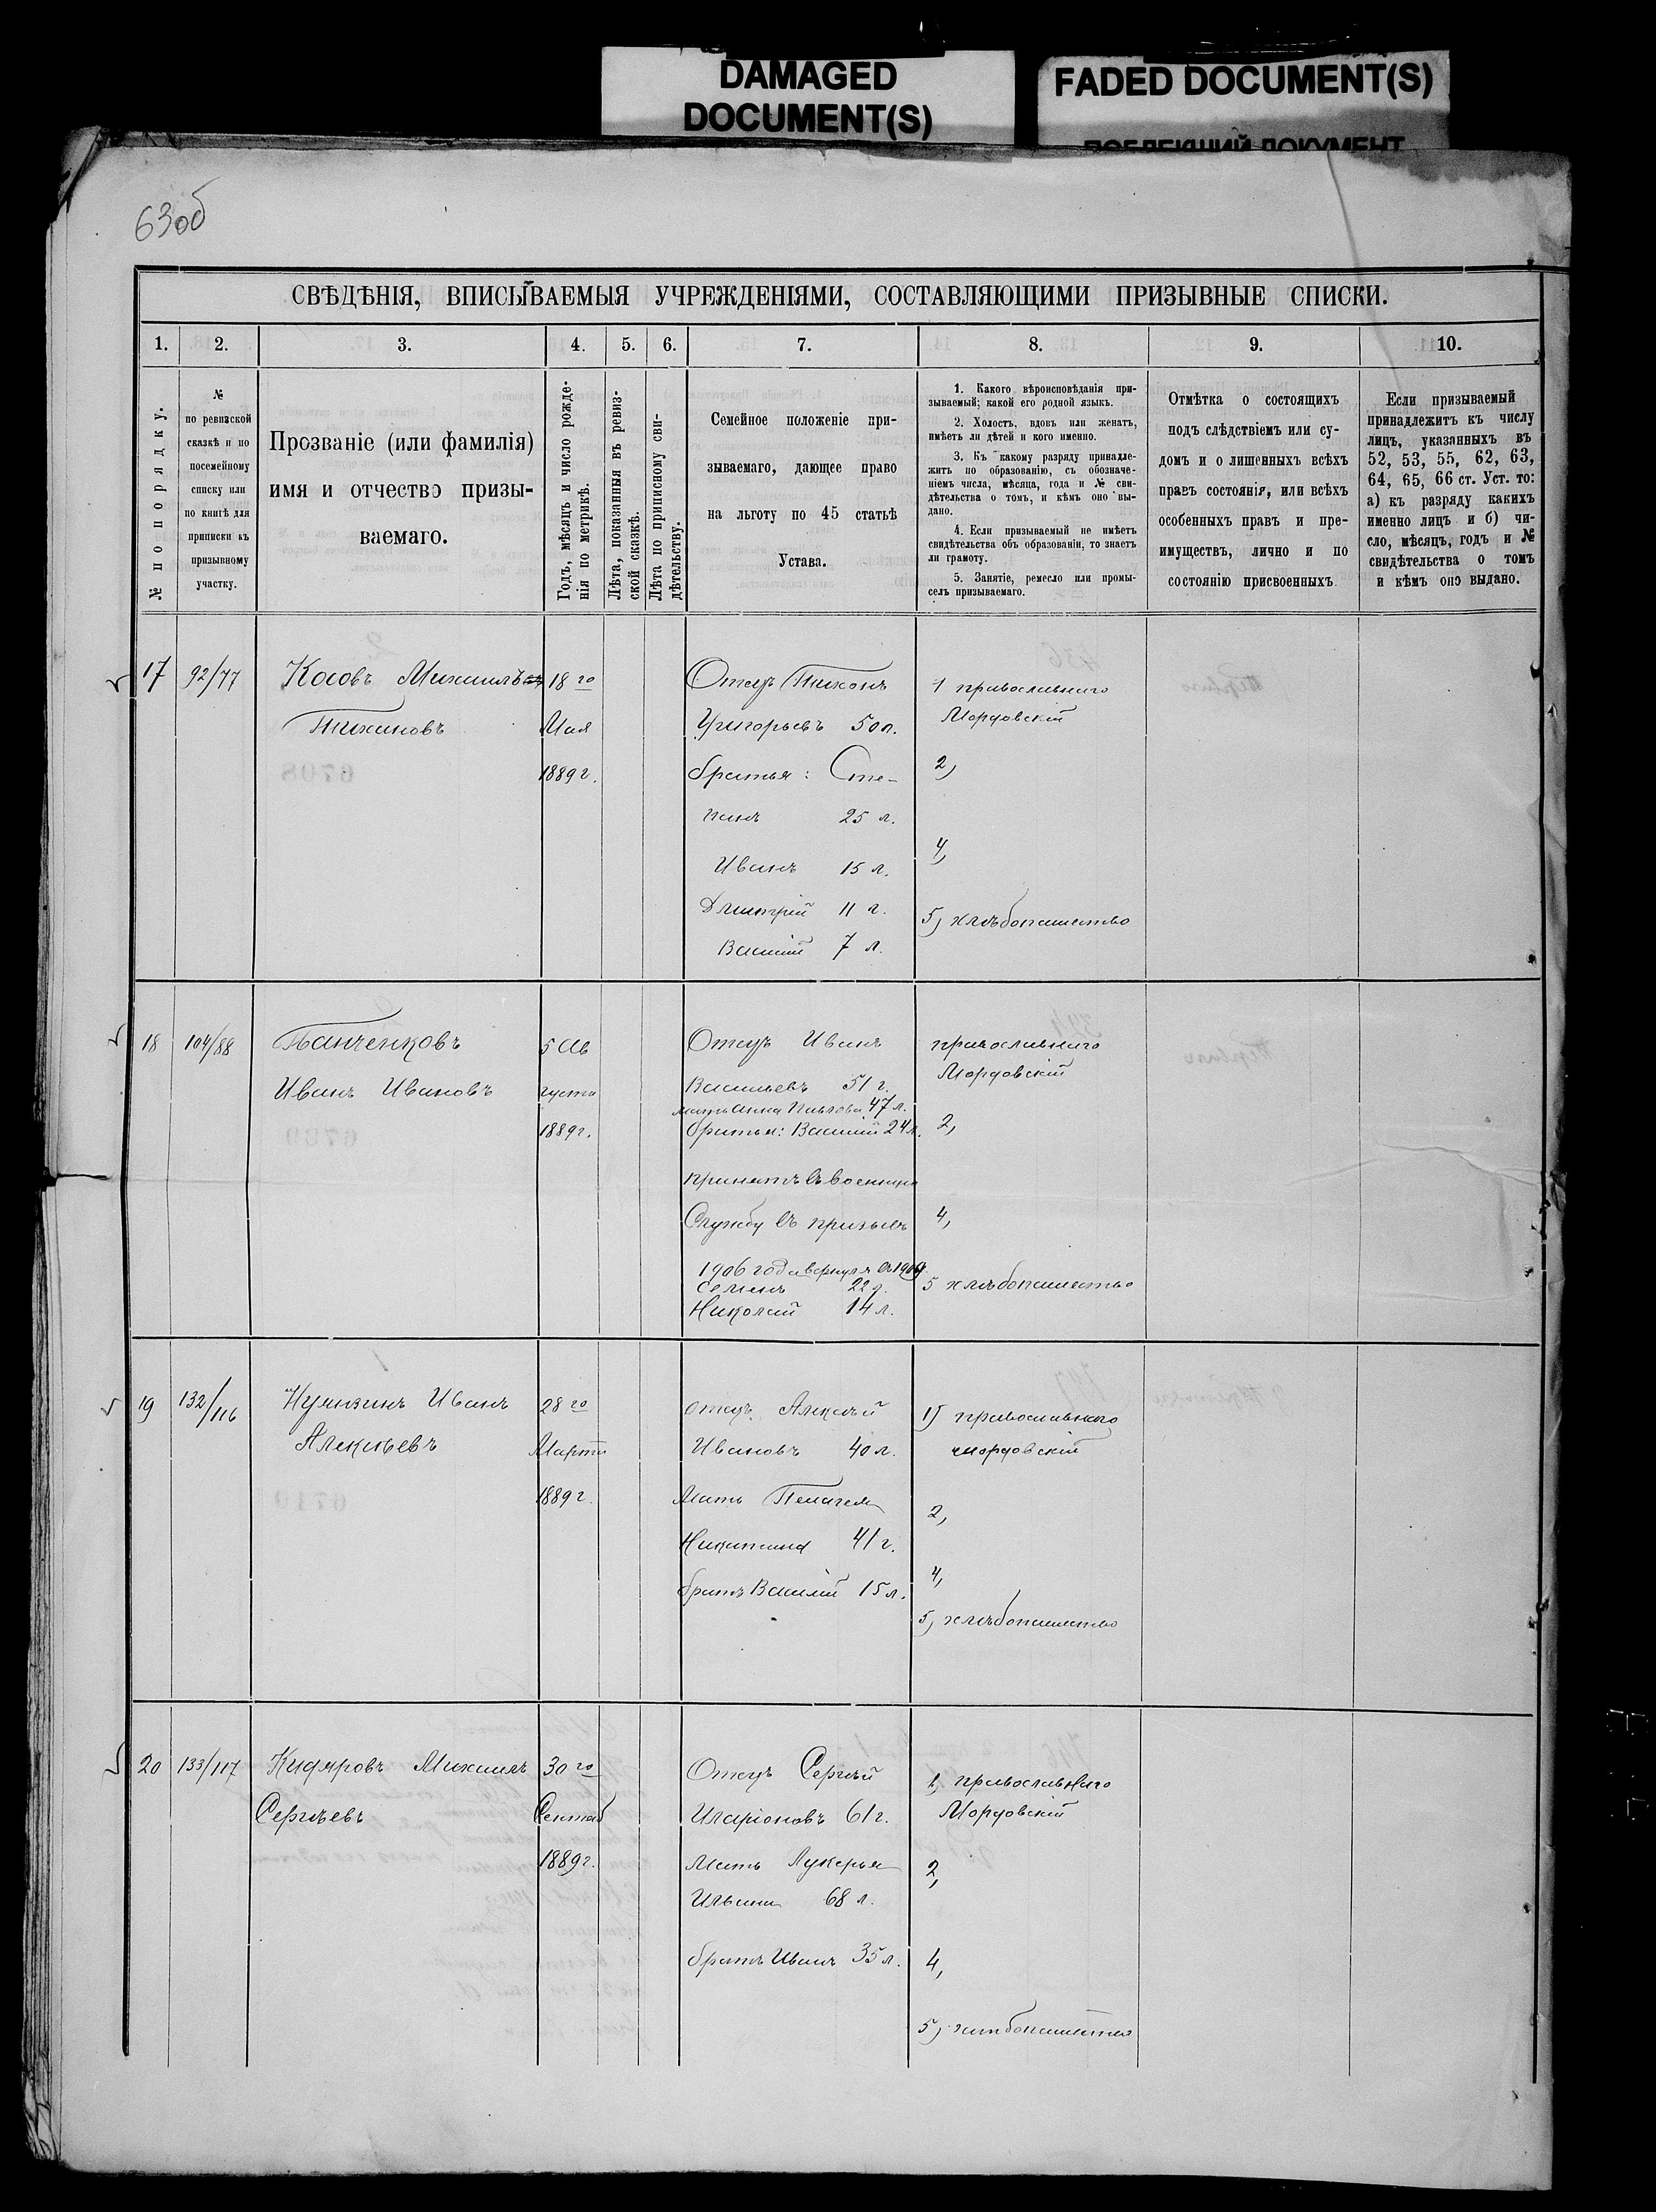 DAMAGED
DOCUMENT(S)
FADED DOCUMENT(S)
63об
СВѢДѢНІЯ, ВПИСЫВАЕМЫЯ УЧРЕЖДЕНІЯМИ, СОСТАВЛЯЮЩИМИ ПРИЗЫВНЫЕ СПИСКИ.
1. 2. 3. 4. 5. 6. 7. 8. 9. 10.
№ по порядку.
№
по ревизской
сказкѣ и по
посемейному
списку или
по книгѣ для
приписки къ
призывному
участку.
Прозваніе (или фамилія)
имя и отчество призы-
ваемаго.
Годъ, мѣсяцъ и число рожде-
нія по метрикѣ.
Лѣта, показанныя въ ревиз-
ской сказкѣ.
Лѣта по приписному сви-
дѣтельству.
Семейное положеніе при-
зываемаго, дающее право
на льготу по 45 статьѣ
Устава.
1. Какого вѣроисповѣданія при-
зываемый; какой его родной языкъ.
2. Холостъ, вдовъ или женатъ,
имѣетъ ли дѣтей и кого именно.
3. Къ какому разряду принадле-
житъ по образованію, съ обозначе-
ніемъ числа, мѣсяца, года и № сви-
дѣтельства о томъ, и кѣмъ оно вы-
дано.
4. Если призываемый не имѣетъ
свидѣтельства объ образованіи, то знаетъ
ли грамоту.
5. Занятіе, ремесло или промы-
селъ призываемаго.
Отмѣтка о состоящихъ
подъ слѣдствіемъ или су-
домъ и о лишенныхъ всѣхъ
правъ состоянія, или всѣхъ
особенныхъ правъ и пре-
имуществъ, лично и по
состоянію присвоенныхъ
Если призываемый
принадлежитъ къ числу
лицъ, указанныхъ въ
52, 53, 55, 62, 63,
64, 65, 66 ст. Уст. то:
а) къ разряду какихъ
именно лицъ и б) чи-
сло, мѣсяцъ, годъ и №
свидѣтельства о томъ
и кѣмъ оно выдано.
17
92/77
Косовъ Михаилъ
Тихановъ
18го
Мая
1889г.
Отецъ Тихонъ
Григорьевъ 50л.
братья: Сте-
панъ 25 л.
Иванъ 15 л.
Дмитрій 11 л.
Василій 7 л.
1 православнаго
Мордовскій
2,
4,
5, хлѣбопашество
18
104/88
Панченковъ
Иванъ Ивановъ
5 Ав
густа
1889г.
Отецъ Иванъ
Васильевъ 51 г.
мать Анна Павлова 47 л.
братья: Василій 24л.
принятъ въ военную
Службу въ призывъ
1906 года вернулся въ 1909
Семенъ 22 г.
Николай 14 л.
православнаго
Мордовскій
2,
4,
5 хлѣбопашество
19
132/116
Нумизинъ Иванъ
Алексѣевъ
28го
Марта
1889г.
отецъ Алексѣй
Ивановъ 40 л.
Мать Пелагея
Никитина 41 г.
братъ Василій 15 л.
1) православнаго
мордовскій
2,
4,
5, хлѣбопашество
20
133/117
Кидяровъ Михаилъ
Сергѣевъ
30го
Сентяб
1889г.
Отецъ Сергѣй
Иларіоновъ 61 г.
Мать Лукерья
Ильина 68 л.
братъ Иванъ 35 л.
1, православнаго
Мордовскій
2,
4,
5, хлѣбопашество